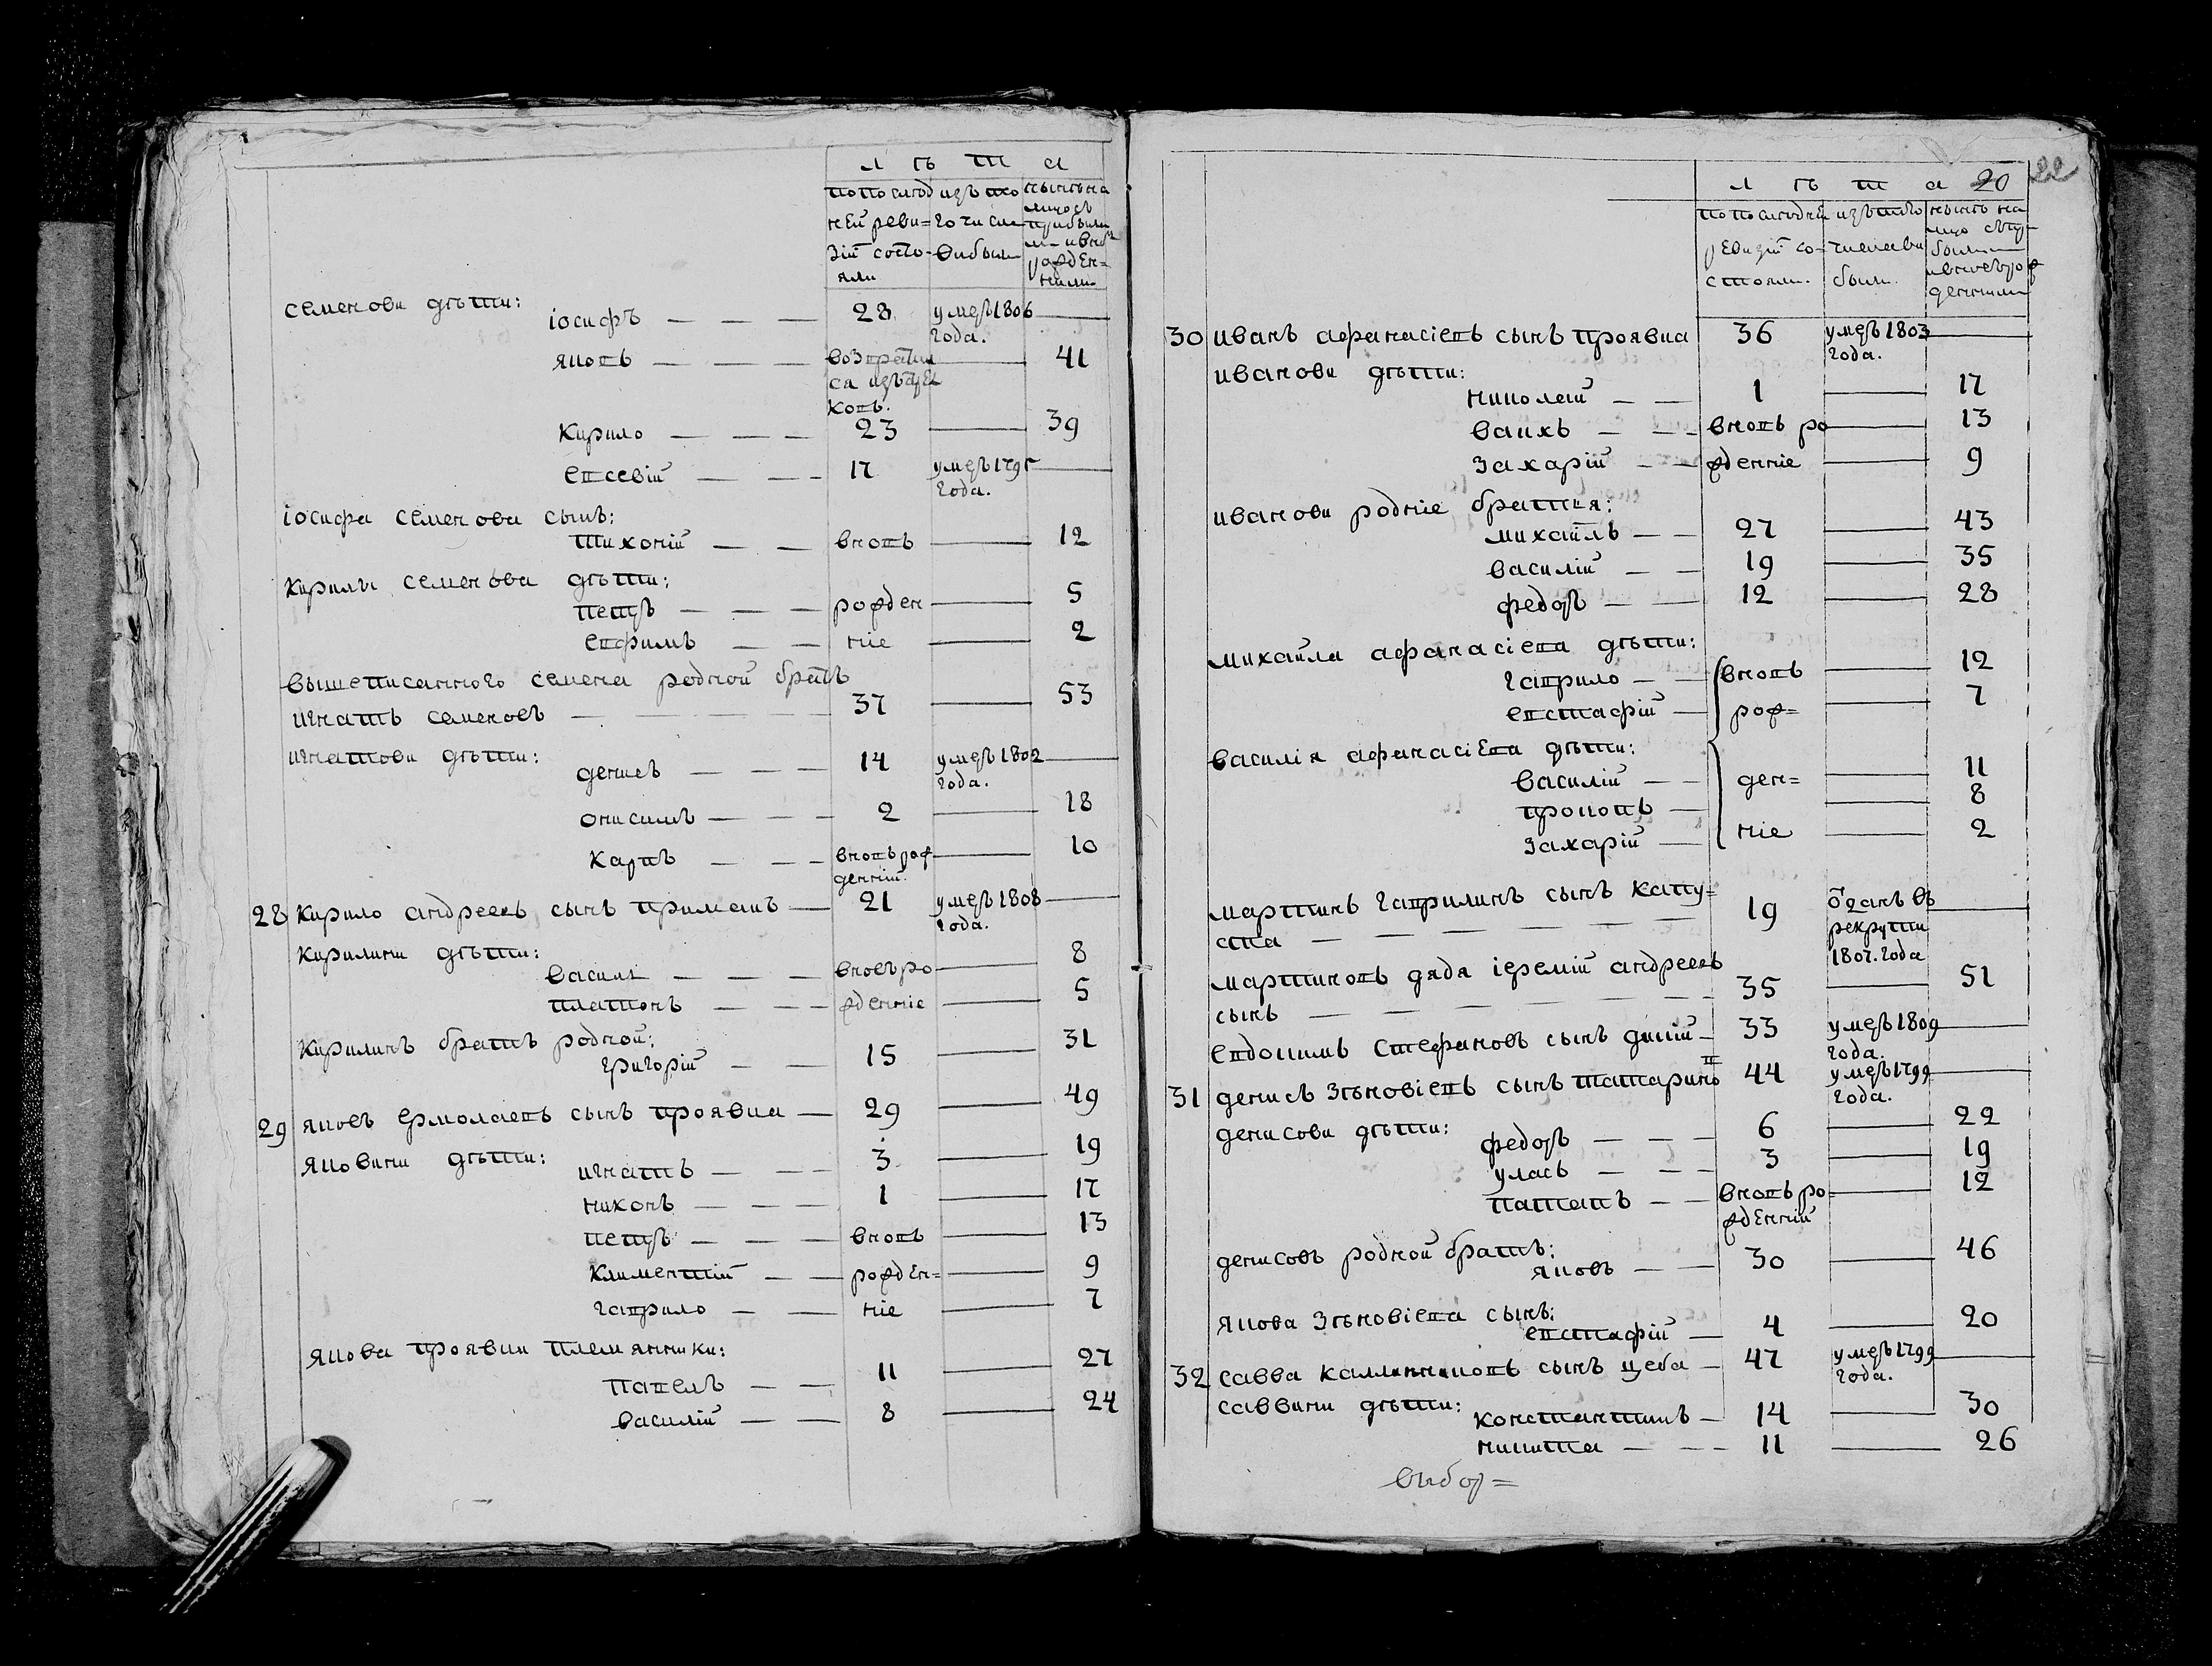 лѣта
по послѣд
ней реви=
зіи состо-
яли
изъ то
го числа
выбыли
нынѣ на
лицо съ
прибылы
ми и внов
рожден=
ными
семенови дѣти:
іосифъ — — — 28 умеръ 1806
года.
яковъ — — — возврати 41
ся изъ бѣ
ковъ.
кирило — — — 23 39
евсевій — — — 17 умеръ 1795
года.
іосифа семенова сынъ:
тихоній — — вновь 12
кирилы семенова дѣти:
петръ — — — рожден 5
ефимъ — — ніе 2
вышеписанного семена родной братъ
игнатъ семеновъ — — — 37 53
игнатови дѣти:
денисъ — — — 14 умеръ 1802
года.
онисимъ — — — 2 18
карпъ — — — вновь рож 10
денній.
28 кирило андреевъ сынъ примакъ — 21 умеръ 1808
года.
кирилини дѣти:
василь — — — вновь ро 8
платонъ — — — жденніе 5
кирилинъ братъ родной:
григорій — — 15 31
29 яковъ ермолаевъ сынъ проявка — 29 49
яковини дѣти:
игнатъ — — 3 19
никонъ — — — 1 17
петръ — — — вновь 13
климентій — — рожден= 9
гаврило — — ніе 7
якова проявки племянники:
павелъ — — 11 27
василій — — 8 24
22
лѣта 20
по послѣдней
ревизіи со-
стояли.
изъ того
числа вы
были.
нынѣ на
лицо съ пр
былы
и вновь рож
денными
30 иванъ афанасіевъ сынъ проявка 36 умеръ 1803
года.
иванови дѣти:
николай — — 1 17
вакхъ — — вновь ро 13
захарій — — жденніе 9
иванови родніе братья:
михайлъ — — 27 43
василій — — 19 35
федоръ — — 12 28
михайла афанасіева дѣти:
гаврило — вновь 12
евстафій — рож= 7
василія афанасіева дѣти:
василій — — ден= 11
прокопъ — 8
захарій — ніе 2
мартинъ гаврилинъ сынъ капу=
ста — — — — — 19 отданъ въ
рекрути
1807. года
мартиновъ дядя іеремій андреевъ
сынъ — — — — 35 51
евдокимъ стефановъ сынъ дикій — 33 умеръ 1809
года.
31 денисъ зѣновіевъ сынъ татариновъ 44 умеръ 1799
года.
денисови дѣти:
федоръ — — — 6 22
уласъ — — — 3 19
патапъ — — вновь ро= 12
жденній
денисовъ родной братъ:
яковъ — — 30 46
якова зѣновіева сынъ:
евстафій — 4 20
32 савва каллинниковъ сынъ цеба — 47 умеръ 1799
года.
саввини дѣти:
константинъ — 14 30
никита — — — 11 26
выбор=